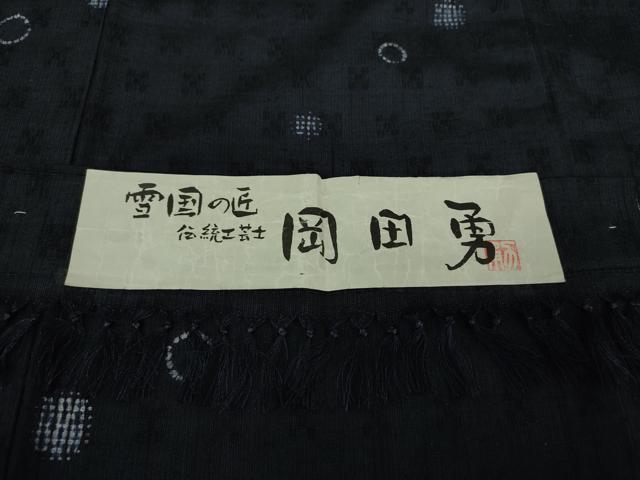 雪国の匠
伝統工芸士
岡田勇